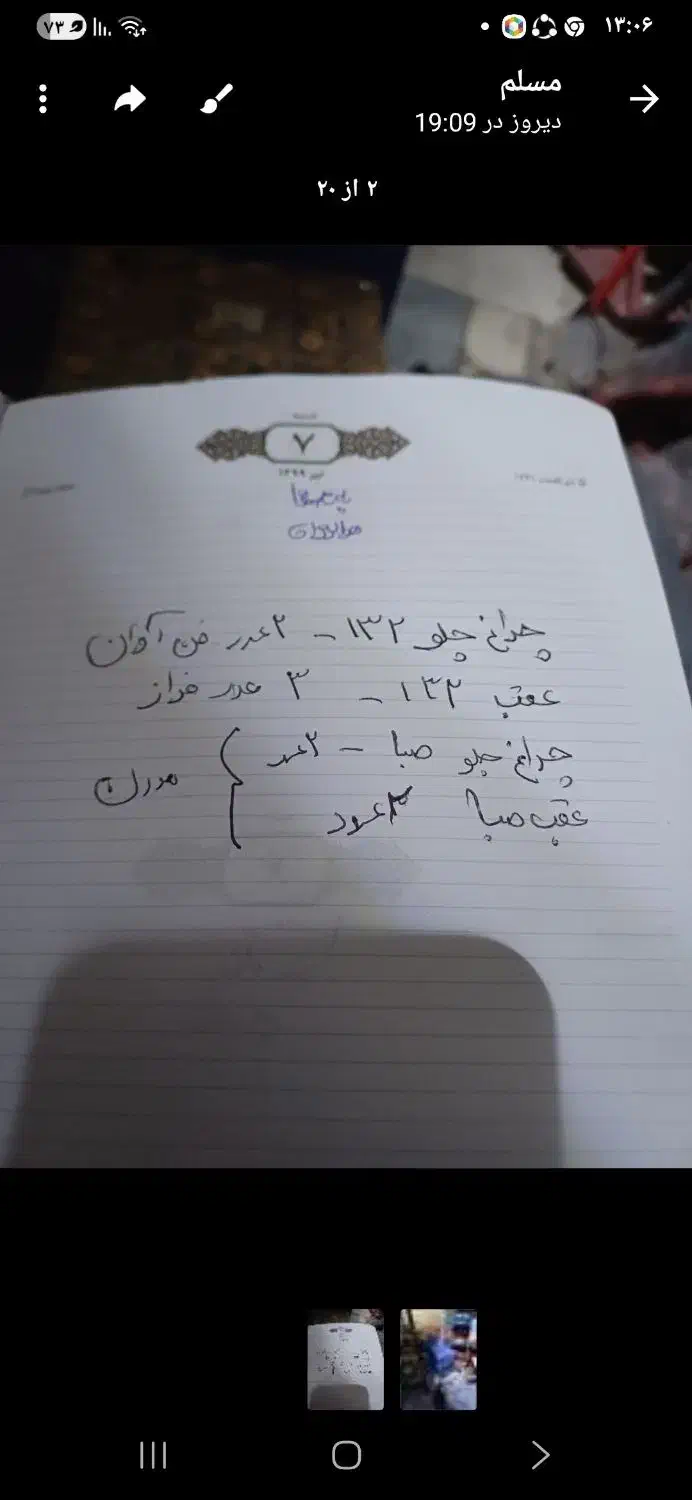 ۱۳:۰۶
۷۳
مسلم
دیروز در 19:09
۲ از ۲۰
۷
تیر ۱۳۹۹
چراغ جلو ۱۳۲ - ۲ عدد فن آوران
عقب ۱۳۲ - ۳ عدد فراز
چراغ جلو صبا - ۲ عدد
عقب صبا ۳ عدد
مدرن